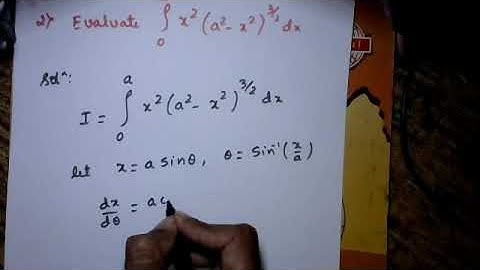 2) Evaluate ∫₀ x² (a² - x²)^3/2 dx
Solⁿ:
I = ∫₀ᵃ x² (a² - x²)^3/2 dx
let x = a sinθ, θ = Sin⁻¹(x/a)
dx/dθ = a c